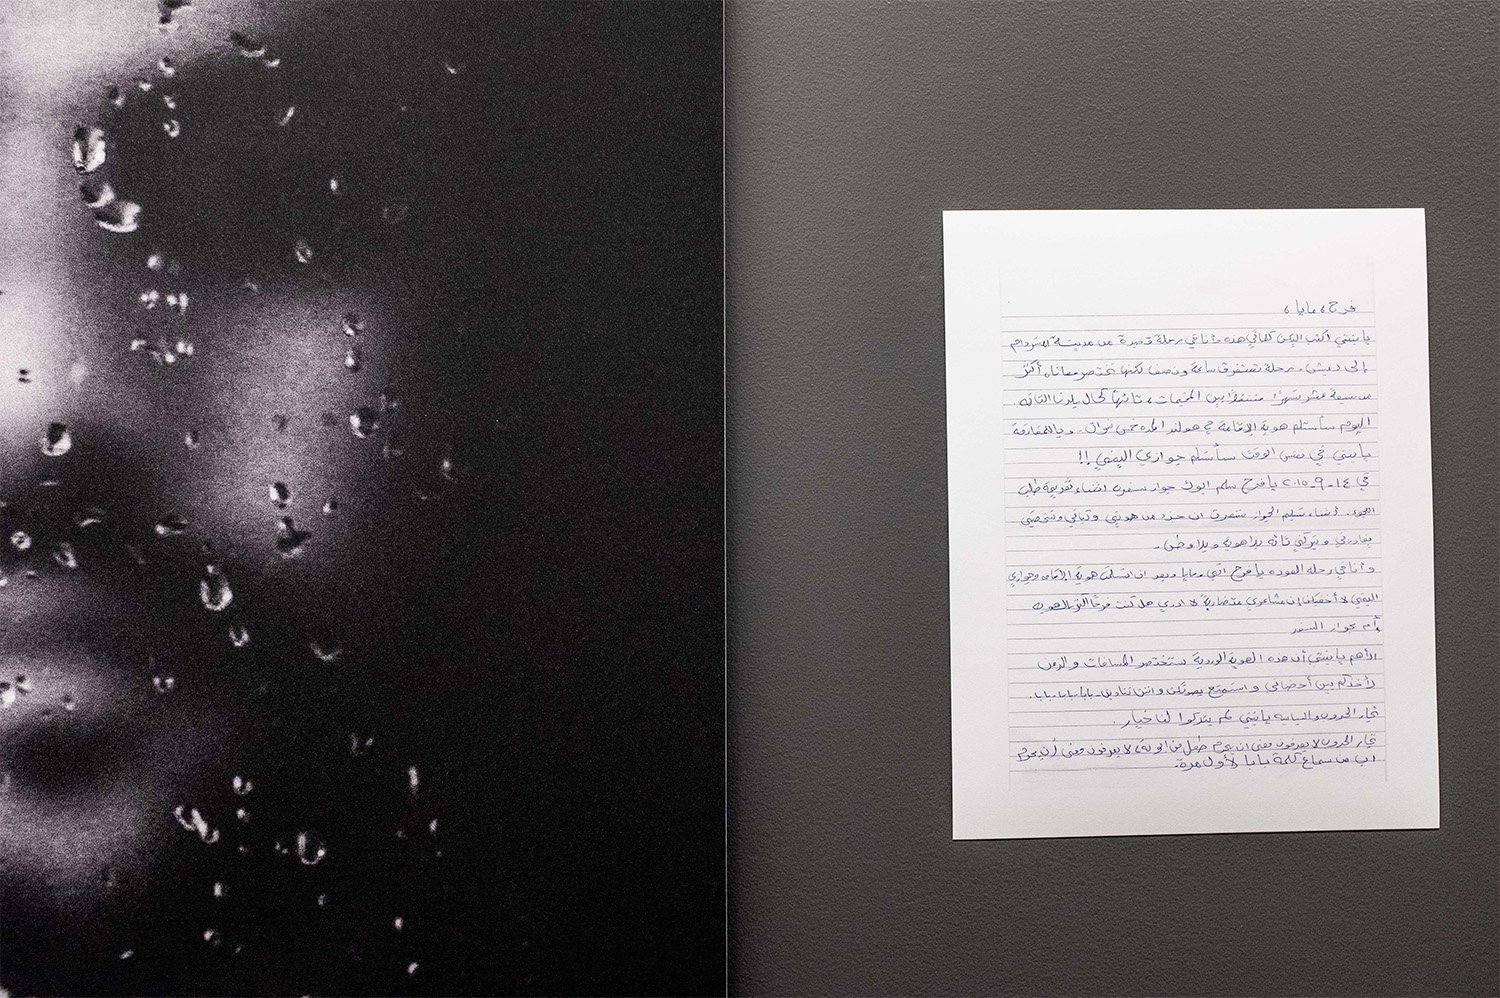 فرح، مايا،
يا بنتي اكتب اليكن كلماتي هذه وأنا في رحلة قصيرة من مدينة امستردام
إلى ديش. رحلة تستغرق ساعة ونصف لكنها تختصر معاناه أكثر
من سبعة عشر شهرًا متنقلًا بين المخيمات، تائهًا كحال بلدنا التائه.
اليوم سأستلم هوية الإقامة في هولندا لمدة خمس سنوات. ويا للمفارقة
يا بنتي في نفس الوقت سأستلم جوازي اليمني !!
في ١٤-٩-٢٠١٥ يا فرح سلم ابوك جواز سفره اثناء تقديمه طلب
اللجوء. أثناء تسليم الجواز شعرت ان جزء من هويتي وكياني وشخصيتي
يغادرني ويتركني تائه بلا هوية وبلا وطن.
وأنا في رحله العوده يا فرح انتي ومايا وبعد ان استلمت هوية الاقامه وجوازي
اليمني لا أخفيكن إن مشاعري متضاربة لا ادري هل كنت فرحًا أكثر بالهويه
أم بجواز السفر
الأهم يا بنتي أن هذه الهوية الوردية ستختصر المسافات والزمن
لأخذكم بين أحضاني و استمتع بصوتكن وانتن تنادين بابا.بابا.بابا.
تجار الحروب والسياسه يا بنتي لم يتركوا لنا خيار.
تجار الحروب لا يعرفون معنى ان يحرم طفل من ابوية، لا يعرفون معنى أن يحرم
اب من سماع كلمة بابا لأول مرة.